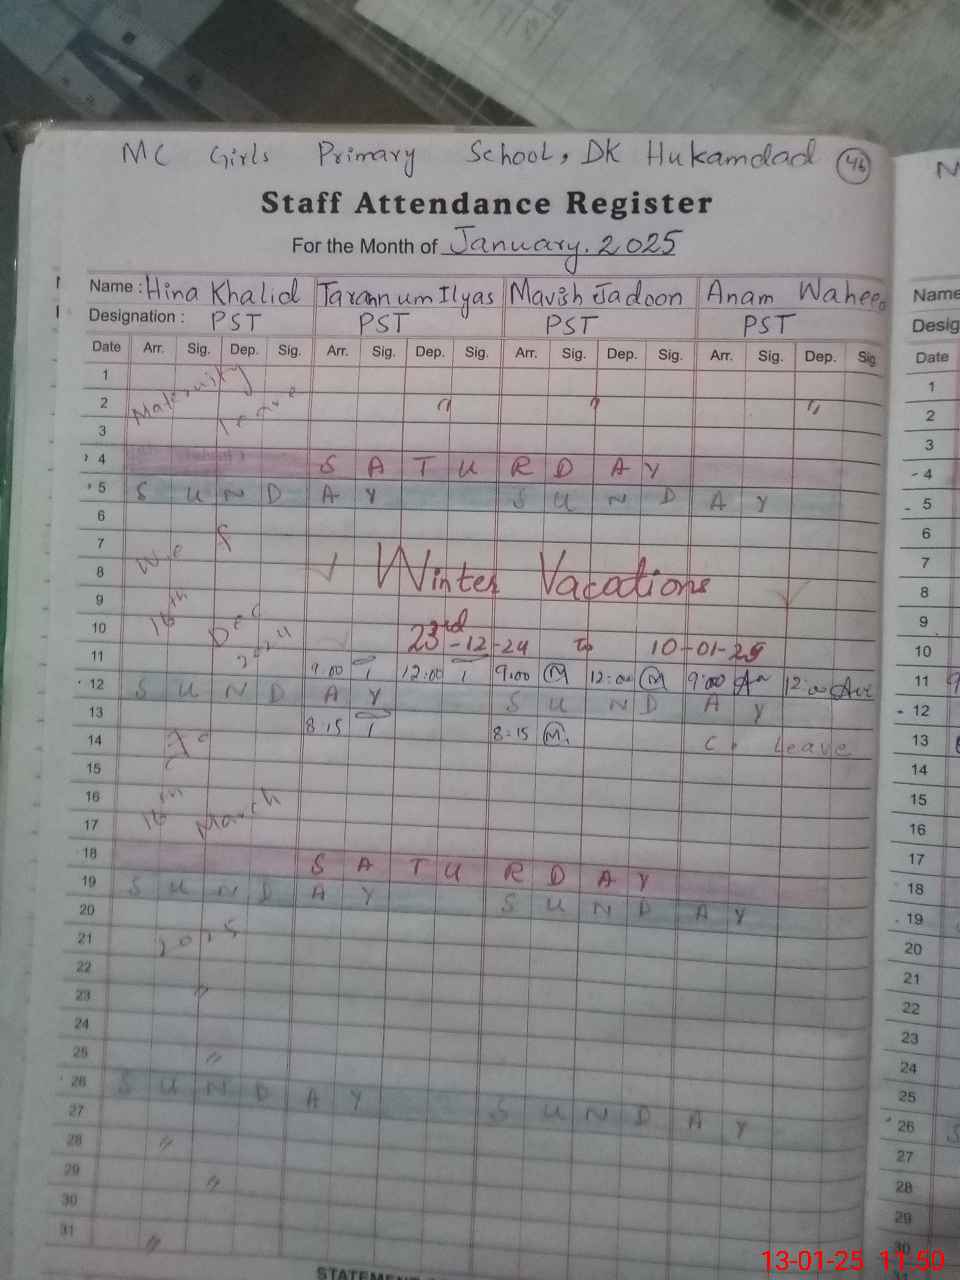 MC Girls Primary School, DK Hukamdad 46
Staff Attendance Register
For the Month of January. 2025
Name : Hina Khalid Tarannum Ilyas Mavish Jadoon Anam Waheed
Designation : PST PST PST PST
Date Arr. Sig. Dep. Sig. Arr. Sig. Dep. Sig. Arr. Sig. Dep. Sig. Arr. Sig. Dep. Sig.
1
2 Maternity Leave " " "
3
4 SATURDAY
5 SUNDAY SUNDAY
6
7
8 W.e f Winter Vacations
9
10 16th Dec 23rd-12-24 To 10-01-25
11 9:00 12:00 9:00 M 12:00 M 9:00 12:00
12 SUNDAY SUNDAY
13 8:15 8:15 M. C. Leave
14 To
15
16
17 16th March
18 SATURDAY
19 SUNDAY SUNDAY
20
21 2025
22
23 "
24
25 "
26 SUNDAY SUNDAY
27
28 "
29 "
30
31 "
Name
Desig
Date
1
2
3
4
5
6
7
8
9
10
11 9
12
13
14
15
16
17
18
19
20
21
22
23
24
25
26 S
27
28
29
30
13-01-25 11:50